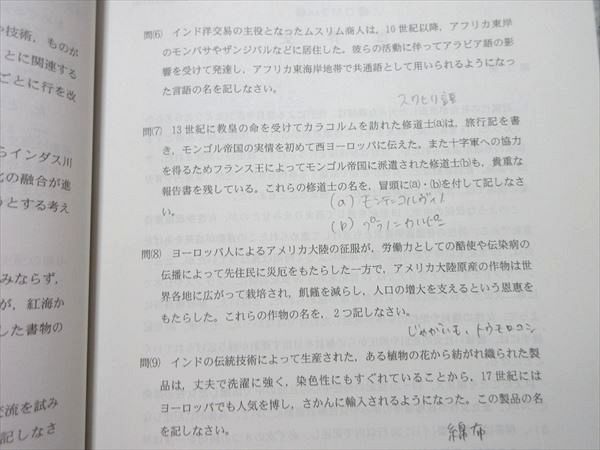 や技術，ものが
とに関連する
ごとに行を改
らインダス川
化の融合が進
うとする考え
みならず，
が，紅海か
した書物の
交流を試み
記しなさ
問(6) インド洋交易の主役となったムスリム商人は，10世紀以降，アフリカ東岸
のモンバサやザンジバルなどに居住した。彼らの活動に伴ってアラビア語の影
響を受けて発達し，アフリカ東海岸地帯で共通語として用いられるようになっ
た言語の名を記しなさい。
スワヒリ語
問(7) 13世紀に教皇の命を受けてカラコルムを訪れた修道士(a)は，旅行記を書
き，モンゴル帝国の実情を初めて西ヨーロッパに伝えた。また十字軍への協力
を得るためフランス王によってモンゴル帝国に派遣された修道士(b)も，貴重な
報告書を残している。これらの修道士の名を，冒頭に(a)・(b)を付して記しなさ
い。
(a) モンテ=コルヴィノ
(b) プラノ=カルピニ
問(8) ヨーロッパ人によるアメリカ大陸の征服が，労働力としての酷使や伝染病の
伝播によって先住民に災厄をもたらした一方で，アメリカ大陸原産の作物は世
界各地に広がって栽培され，飢饉を減らし，人口の増大を支えるという恩恵を
もたらした。これらの作物の名を，2つ記しなさい。
じゃがいも，トウモロコシ
問(9) インドの伝統技術によって生産された，ある植物の花から紡がれ織られた製
品は，丈夫で洗濯に強く，染色性にもすぐれていることから，17世紀には
ヨーロッパでも人気を博し，さかんに輸入されるようになった。この製品の名
を記しなさい。
綿布